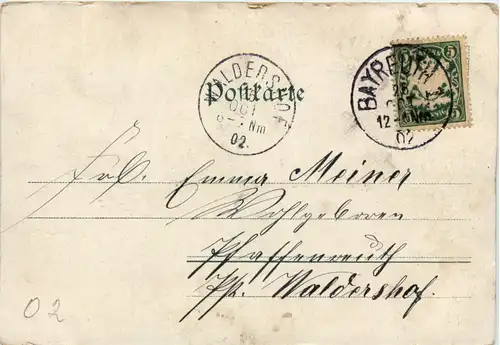 WALDERSHOF
OCT
Nm
02.
BAYREUTH
OCT
12 Nm
02
5
5
Postkarte
Frl. Emma Meiner
Wohlgeboren
Pfaffenreuth
Pp. Waldershof.
02